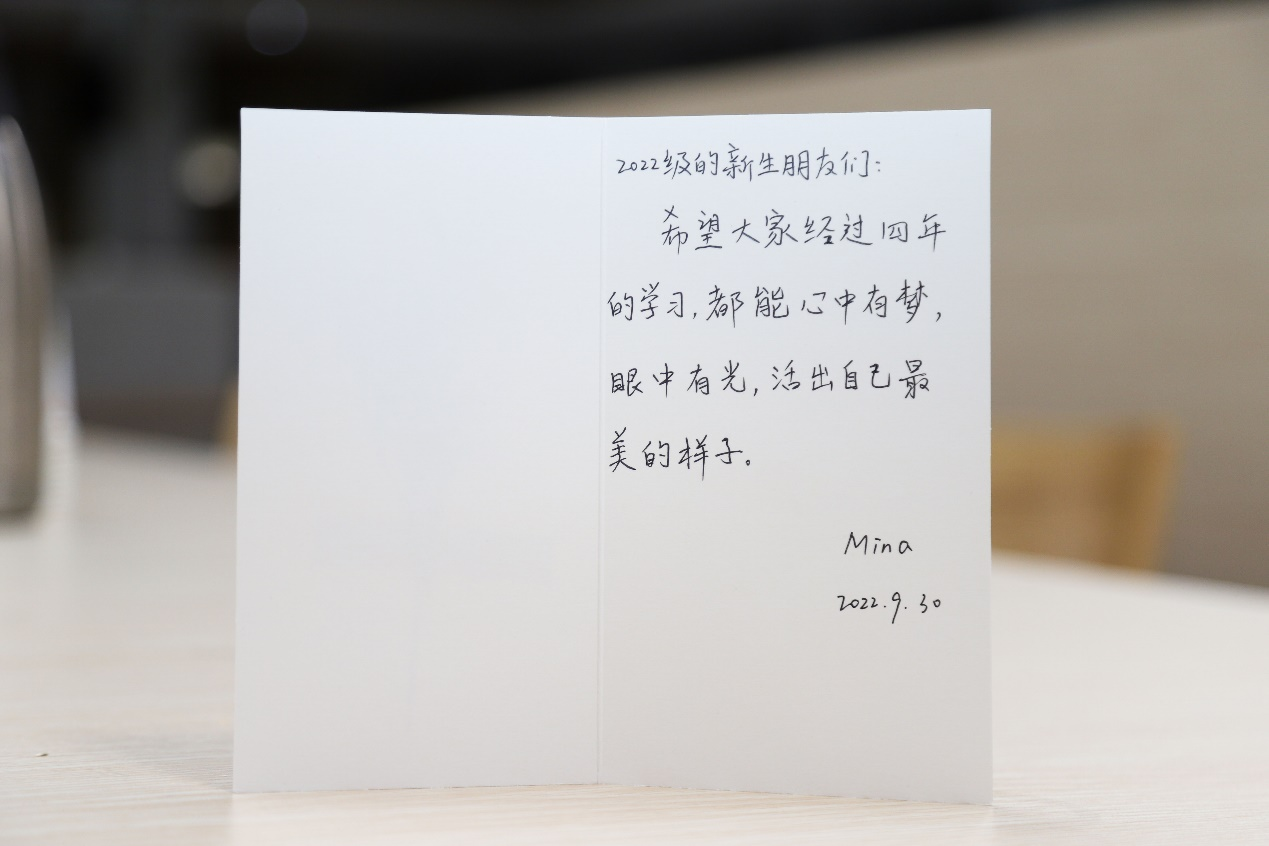 2022级的新生朋友们:
希望大家经过四年
的学习,都能心中有梦,
眼中有光,活出自己最
美的样子。
Mina
2022.9.30